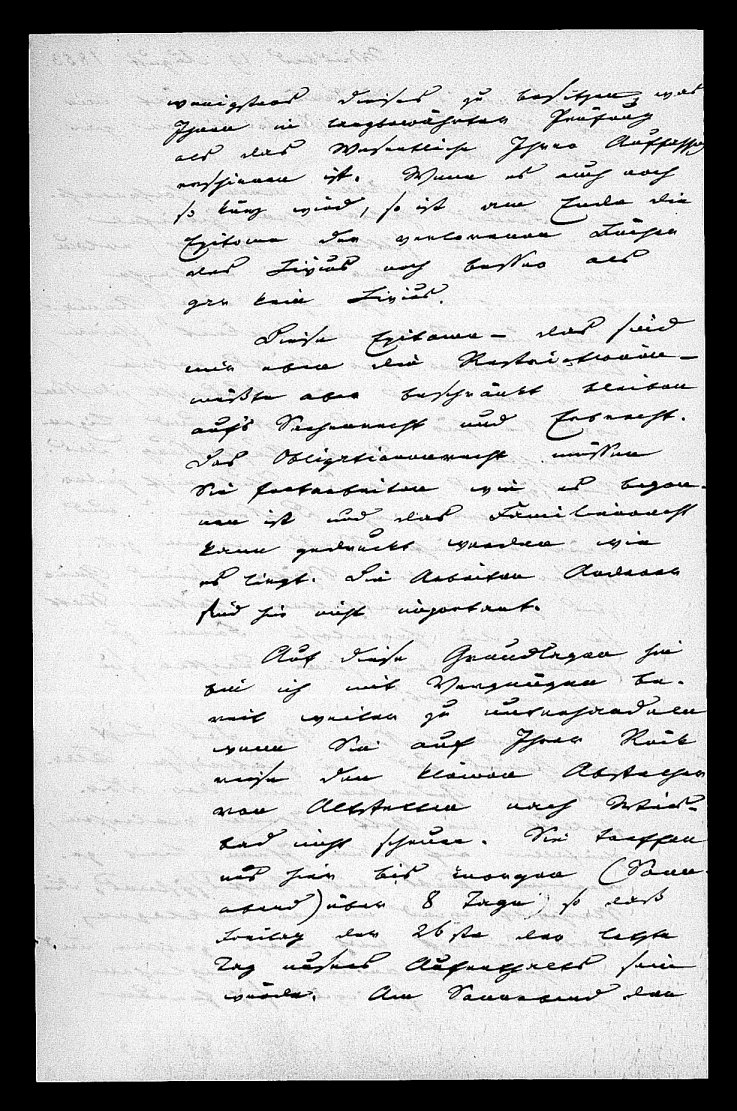 wenigstens dieses zu besitzen, was
Ihnen in langbewährter Prüfung
als das Wesentliche Ihrer Auffassg
erschienen ist. Wenn es auch noch
so kurz wird, so ist am Ende die
Epitome der verlorenen Bücher
des Livius noch besser als
gar kein Livius.
Diese Epitome – das sind
mir eben die
müßte aber beschränkt bleiben
aufs Sachenrecht und Erbrecht.
Das Obligationenrecht müssen
Sie fortarbeiten wie es begon-
nen ist und das Familienrecht
kann gedruckt werden wie
es liegt. Die Arbeiten Anderer
sind hie nicht importent.
Auf diese Grundlagen hin
bin ich mit Vergnügen be-
reit weiter zu unterhandeln
wenn Sie auf Ihrer Rück
reise den kleinen Abstecher
von Altstetten nach Wies-
bad nicht scheuen. Sie treffen
uns hier bis morgen (Sonn-
abend) über 8 Tage, so daß
Freitag der 26ste der letzte
Tag unsres Aufenthalts sein
würde. Am Sonnabend den